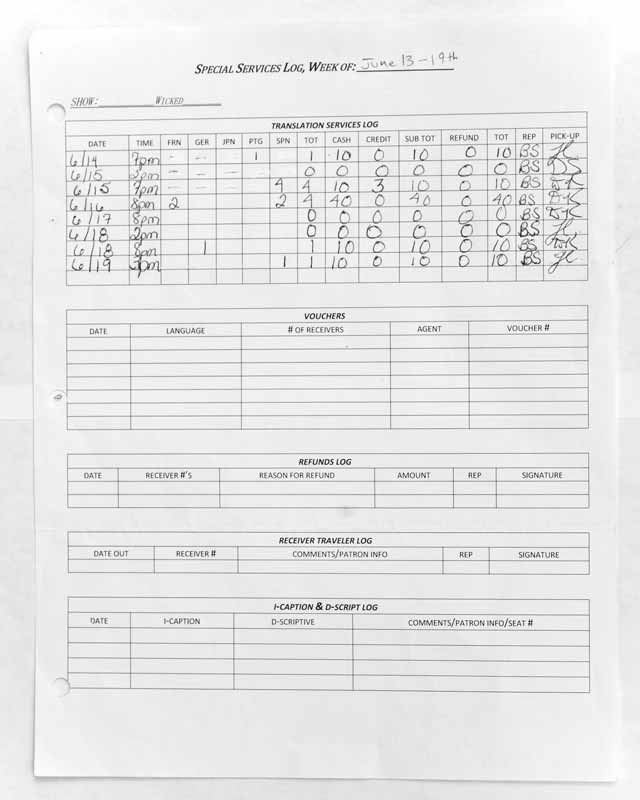 SPECIAL SERVICES LOG, WEEK OF: June 13 - 19th
SHOW: WICKED
TRANSLATION SERVICES LOG
DATE TIME FRN GER JPN PTG SPN TOT CASH CREDIT SUB TOT REFUND TOT REP PICK-UP
6/14 7pm - - - 1 1 10 0 10 0 10 BS
6/15 2pm 0 0 0 0 0 0 BS
6/15 7pm 4 4 10 3 10 0 10 BS DK
6/16 8pm 2 2 4 40 0 40 0 40 BS DK
6/17 8pm 0 0 0 0 0 0 BS DK
6/18 2pm 0 0 0 0 0 0 BS
6/18 8pm 1 1 10 0 10 0 10 BS DK
6/19 1 1 10 0 10 0 10 BS
VOUCHERS
DATE LANGUAGE # OF RECEIVERS AGENT VOUCHER #
REFUNDS LOG
DATE RECEIVER #'S REASON FOR REFUND AMOUNT REP SIGNATURE
RECEIVER TRAVELER LOG
DATE OUT RECEIVER # COMMENTS/PATRON INFO REP SIGNATURE
I-CAPTION & D-SCRIPT LOG
DATE I-CAPTION D-SCRIPTIVE COMMENTS/PATRON INFO/SEAT #